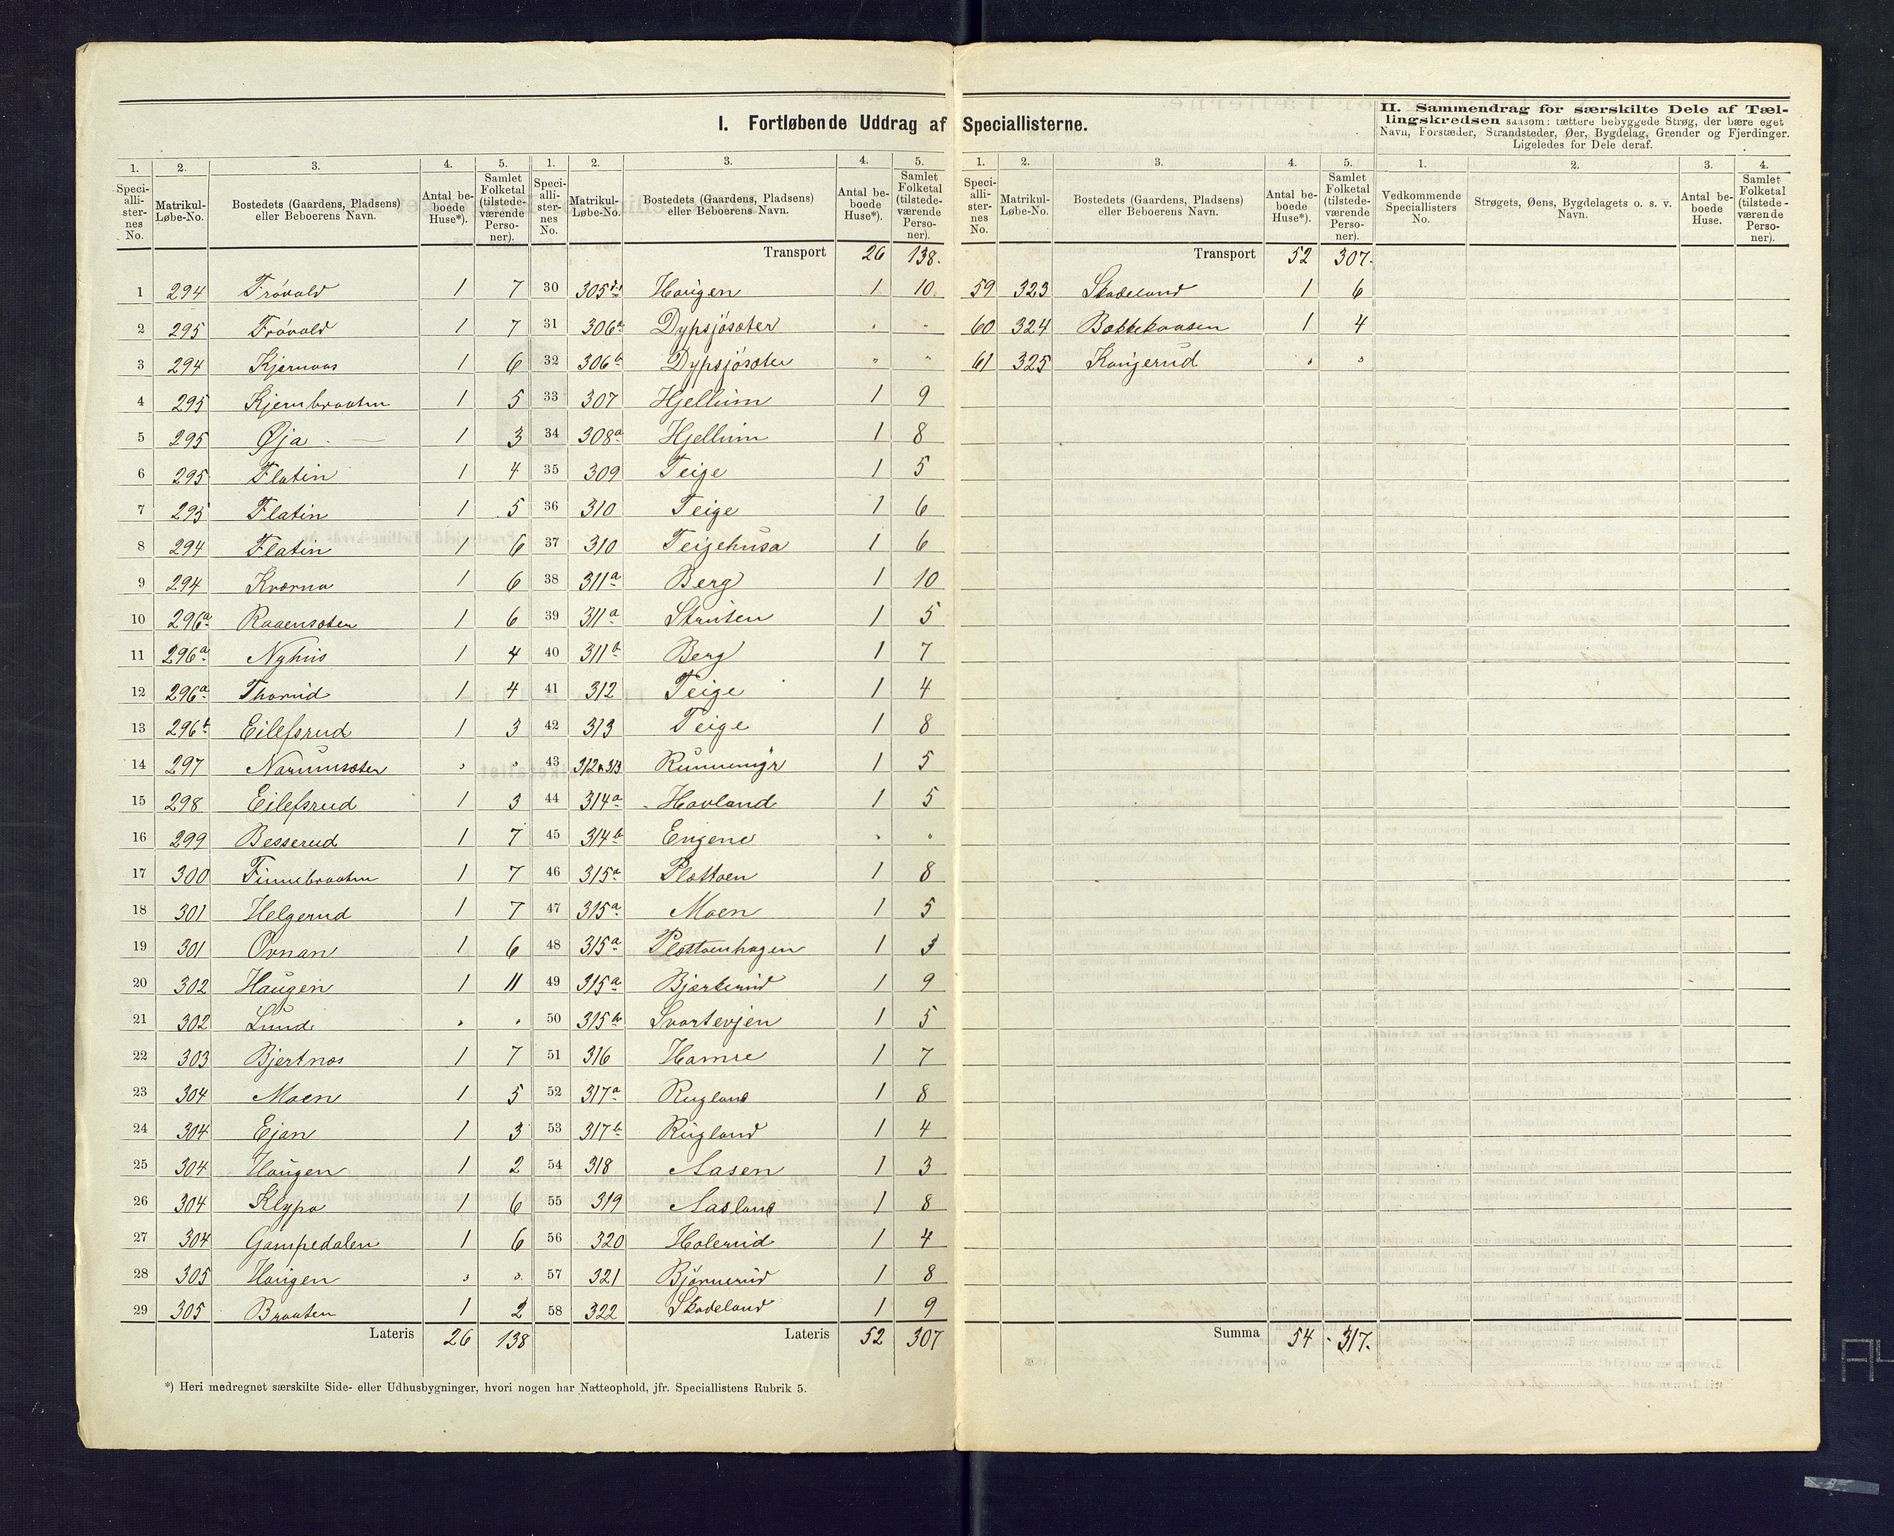 I. Fortløbende Uddrag af Speciallisterne.
II. Sammendrag for særskilte Dele af Tællingskredsen saasom: tættere bebyggede Strøg, der bære eget
Navn, Forstæder, Strandsteder, Øer, Bygdelag, Grender og Fjerdinger.
Ligeledes for Dele deraf.
1. 2. 3. 4. 5.
Speciallisternes No. Matrikul-Løbe-No. Bostedets (Gaardens, Pladsens) eller Beboerens Navn. Antal beboede Huse*). Samlet Folketal (tilstedeværende Personer).
1 294 Frövold 1 7
2 295 Frövold 1 7
3 294 Kjernaas 1 6
4 295 Kjernbraaten 1 5
5 295 Øja 1 3
6 295 Flatin 1 4
7 295 Flatin 1 5
8 294 Flatin 1 6
9 294 Kværna 1 6
10 296a Raaensæter 1 6
11 296a Nyhus 1 4
12 296a Thorud 1 4
13 296b Eilefsrud 1 3
14 297 Narumsæter " "
15 298 Eilefsrud 1 3
16 299 Besserud 1 7
17 300 Finnebraaten 1 7
18 301 Helgerud 1 7
19 301 Ovnan 1 6
20 302 Haugen 1 11
21 302 Lund " "
22 303 Bjertnæs 1 7
23 304 Moen 1 5
24 304 Ejan 1 3
25 304 Haugen 1 2
26 304 Klypa 1 6
27 304 Gampedalen 1 6
28 305 Haugen " "
29 305 Braaten 1 2
Lateris 26 138
1. 2. 3. 4. 5.
Speciallisternes No. Matrikul-Løbe-No. Bostedets (Gaardens, Pladsens) eller Beboerens Navn. Antal beboede Huse*). Samlet Folketal (tilstedeværende Personer).
Transport 26 138.
30 305 Haugen 1 10
31 306a Dypsjösæter " "
32 306b Dypsjösæter " "
33 307 Hjellum 1 9
34 308a Hjellum 1 8
35 309 Teige 1 5
36 310 Teige 1 6
37 310 Teigehusa 1 6
38 311a Berg 1 10
39 311a Struten 1 5
40 311b Berg 1 7
41 312 Teige 1 4
42 313 Teige 1 8
43 312 & 313 Runnemyr 1 5
44 314a Havland 1 5
45 314b Engene " "
46 315a Plættaen 1 8
47 315a Moen 1 5
48 315a Plættaenhagen 1 3
49 315a Bjerkerud 1 9
50 315b Svartevjen 1 5
51 316 Hamre 1 7
52 317a Rugland 1 8
53 317b Rugland 1 4
54 318 Aasen 1 3
55 319 Aasland 1 8
56 320 Holerud 1 4
57 321 Björnerud 1 8
58 322 Skadeland 1 9
Lateris 52 307
1. 2. 3. 4. 5.
Speciallisternes No. Matrikul-Løbe-No. Bostedets (Gaardens, Pladsens) eller Beboerens Navn. Antal beboede Huse*). Samlet Folketal (tilstedeværende Personer).
Transport 52 307.
59 323 Skadeland 1 6
60 324 Bakkekaasen 1 4
61 325 Kongerud " "
Summa 54 317.
1. 2. 3. 4.
Vedkommende Speciallisters No. Strøgets, Øens, Bygdelagets o. s. v. Navn. Antal beboede Huse. Samlet Folketal (tilstedeværende Personer).
*) Heri medregnet særskilte Side- eller Udhusbygninger, hvori nogen har Natteophold, jfr. Speciallistens Rubrik 5.